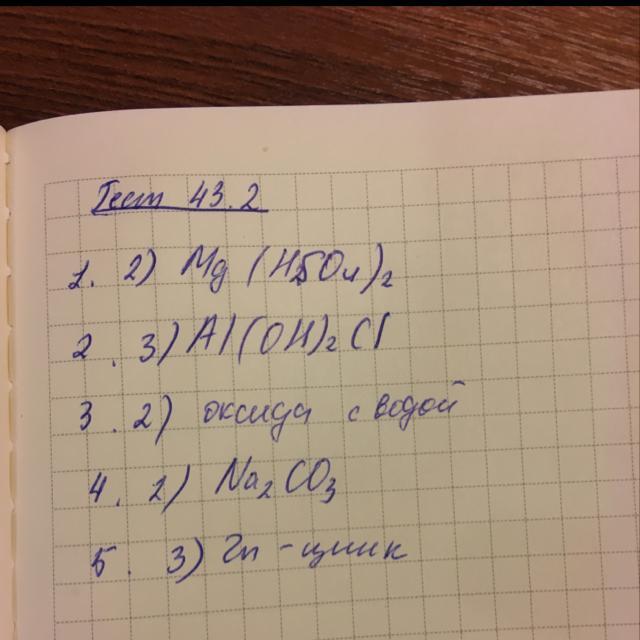 Тест 43.2
1. 2) Mg (HSO4)2
2. 3) Al(OH)2Cl
3. 2) оксида с водой
4. 2) Na2CO3
5. 3) Zn - цинк